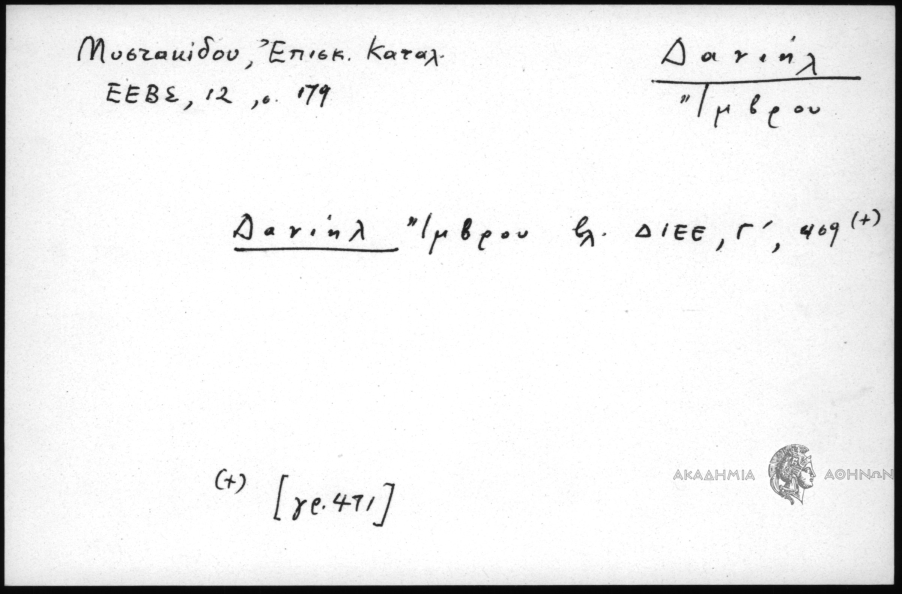 Μυστακίδου, Ἐπισκ. Καταλ.
ΕΕΒΣ, 12, σ. 179
Δανιήλ
Ἴμβρου
Δανιήλ Ἴμβρου βλ. ΔΙΕΕ, Γ´, 469 (+)
(+) [γρ. 471]
ΑΚΑΔΗΜΙΑ ΑΘΗΝΩΝ